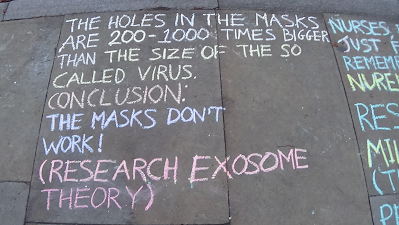 THE HOLES IN THE MASKS
ARE 200-1000 TIMES BIGGER
THAN THE SIZE OF THE SO
CALLED VIRUS.
CONCLUSION:
THE MASKS DON'T
WORK!
(RESEARCH EXOSOME
THEORY)
NURSES,
JUST
REMEM
NUREM
RES
MIL
(T